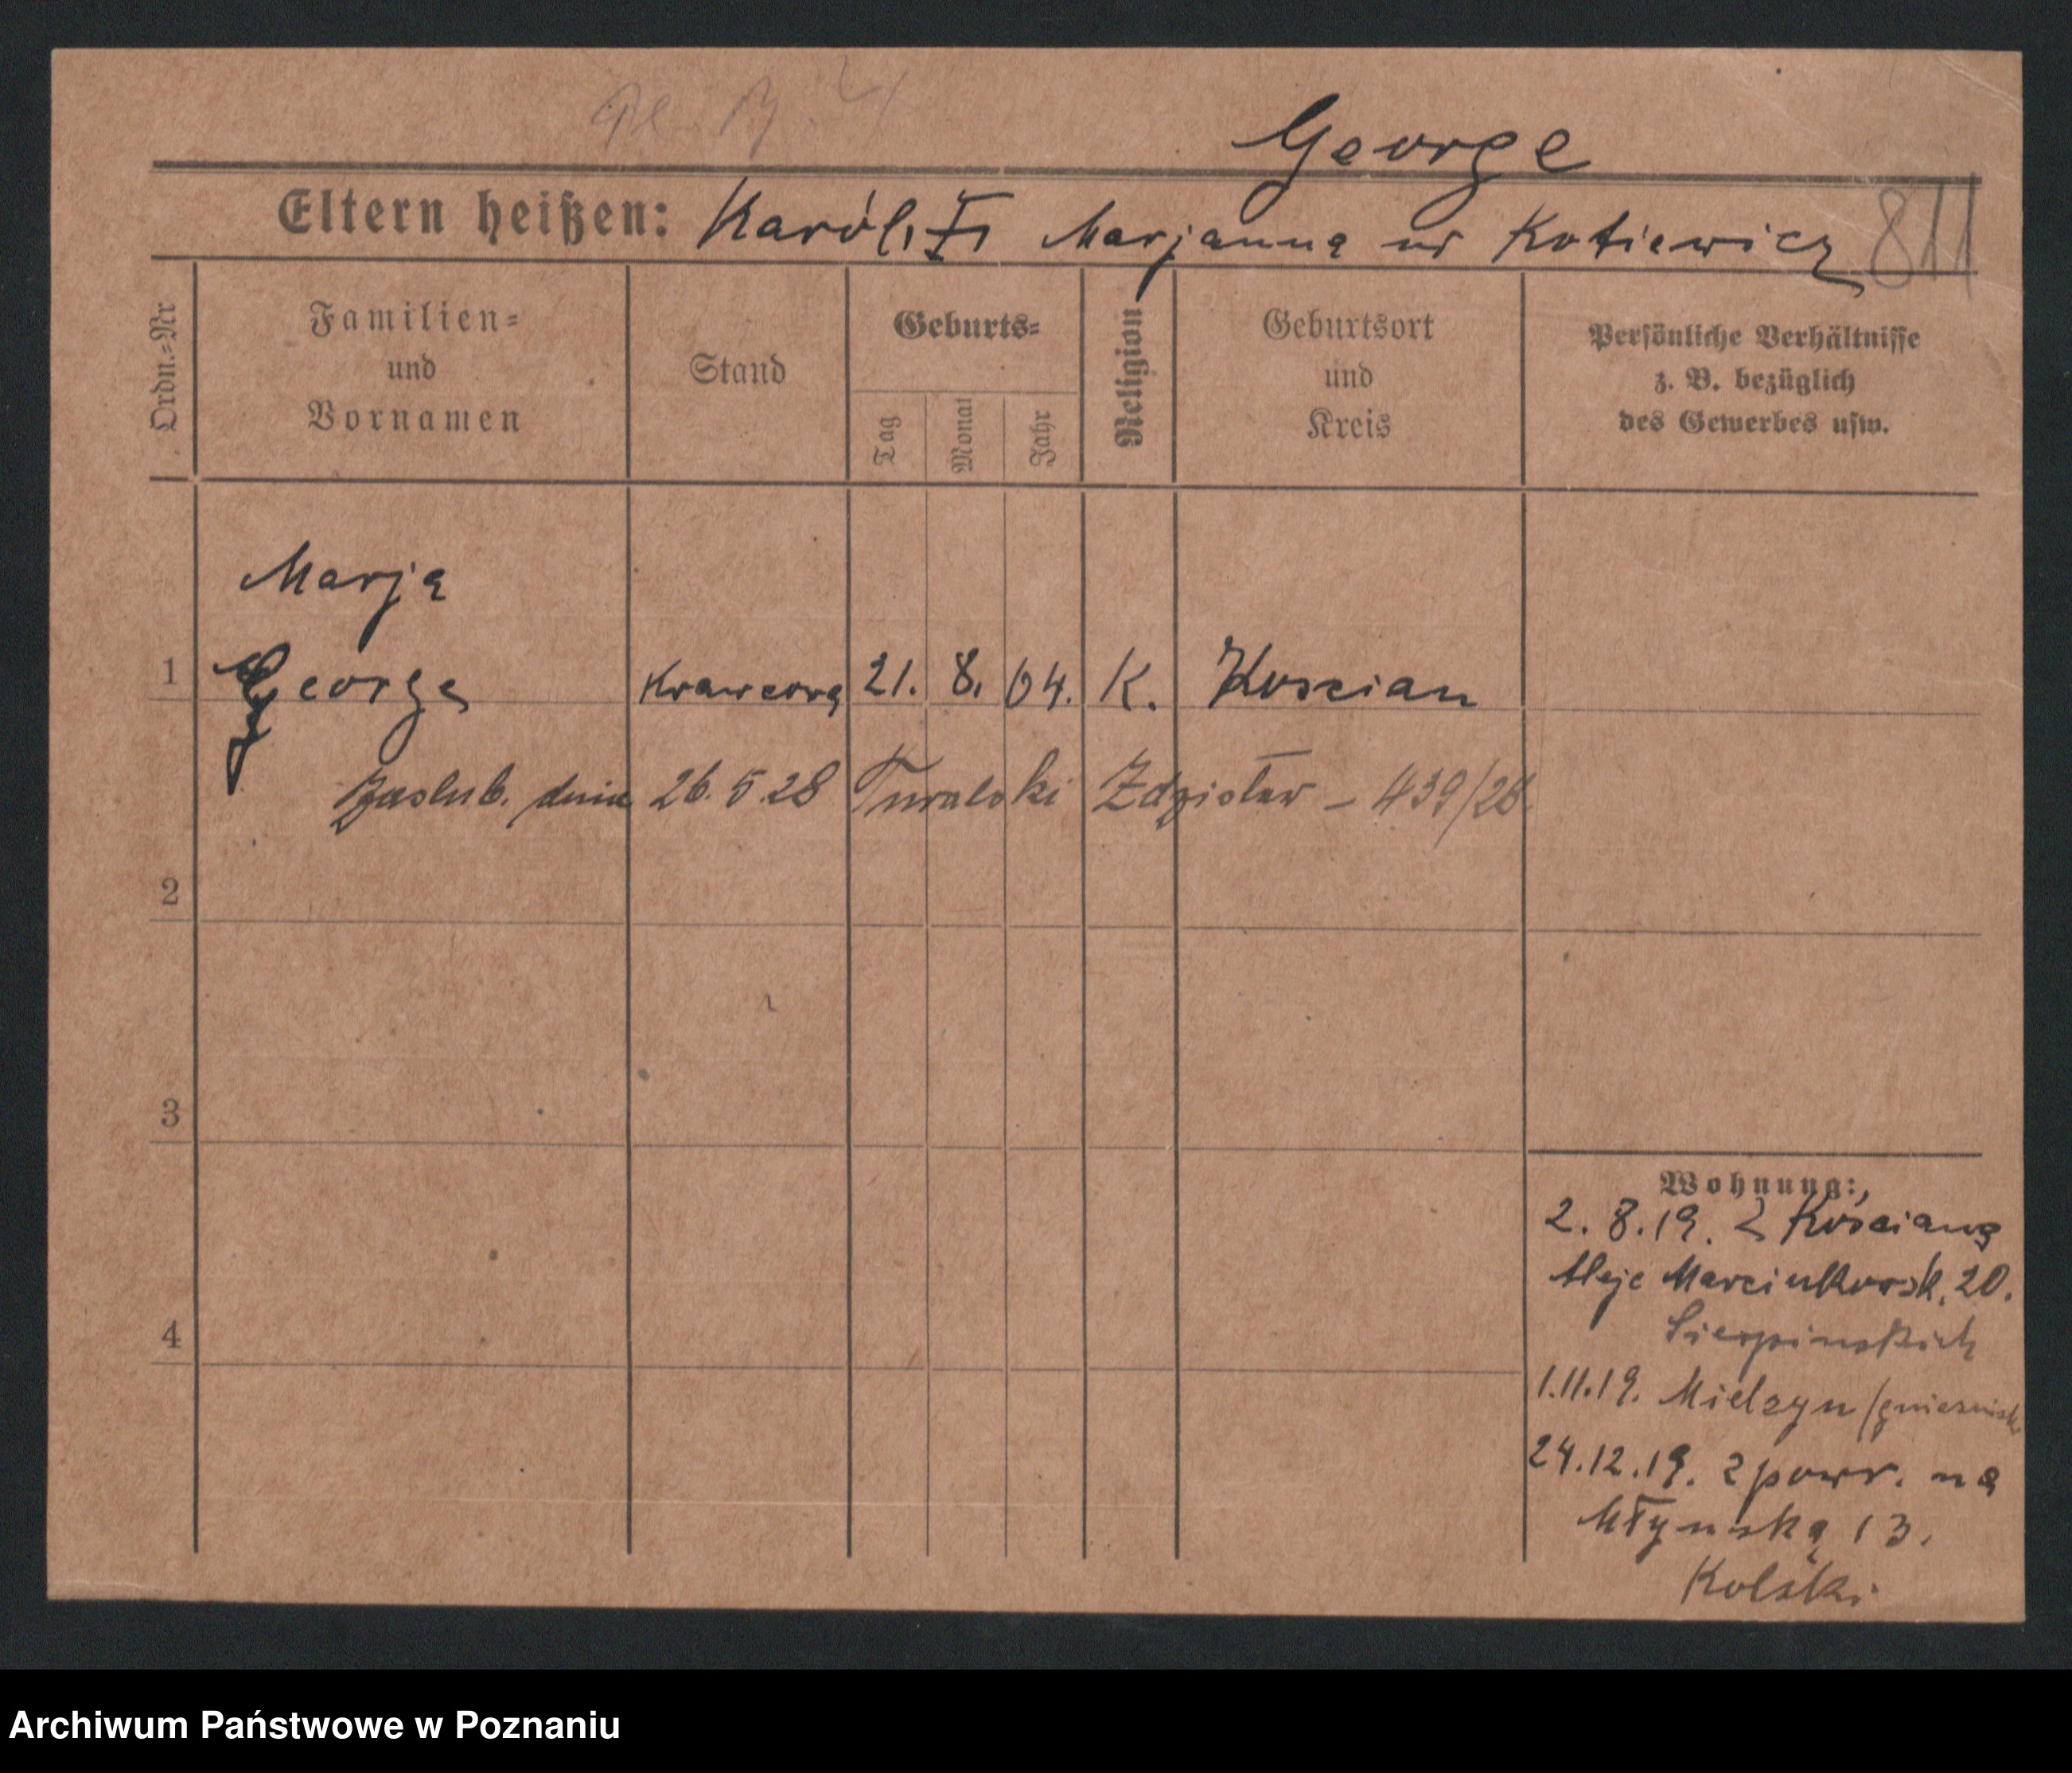 George
Eltern heißen: Karól, Marjanna ur Kotiewicz 811
Ordn.=Nr
Familien=
und
Vornamen
Stand
Geburts=
Tag
Monat
Jahr
Religion
Geburtsort
und
Kreis
Persönliche Verhältnisse
z. B. bezüglich
des Gewerbes usw.
Marja
1 George Krawcowa 21. 8. 04. K. Koscian
Zaslub. dnia 26. 5. 28 Turalski Zdzisław – 439/28
2
3
4
Wohnung:
2. 8. 19. z Kościana
Aleje Marcinkowsk. 20.
Sierpinskich
1.11.19. Mielzyn
24.12.19. z powr. na
Młynską 13.
Kolski